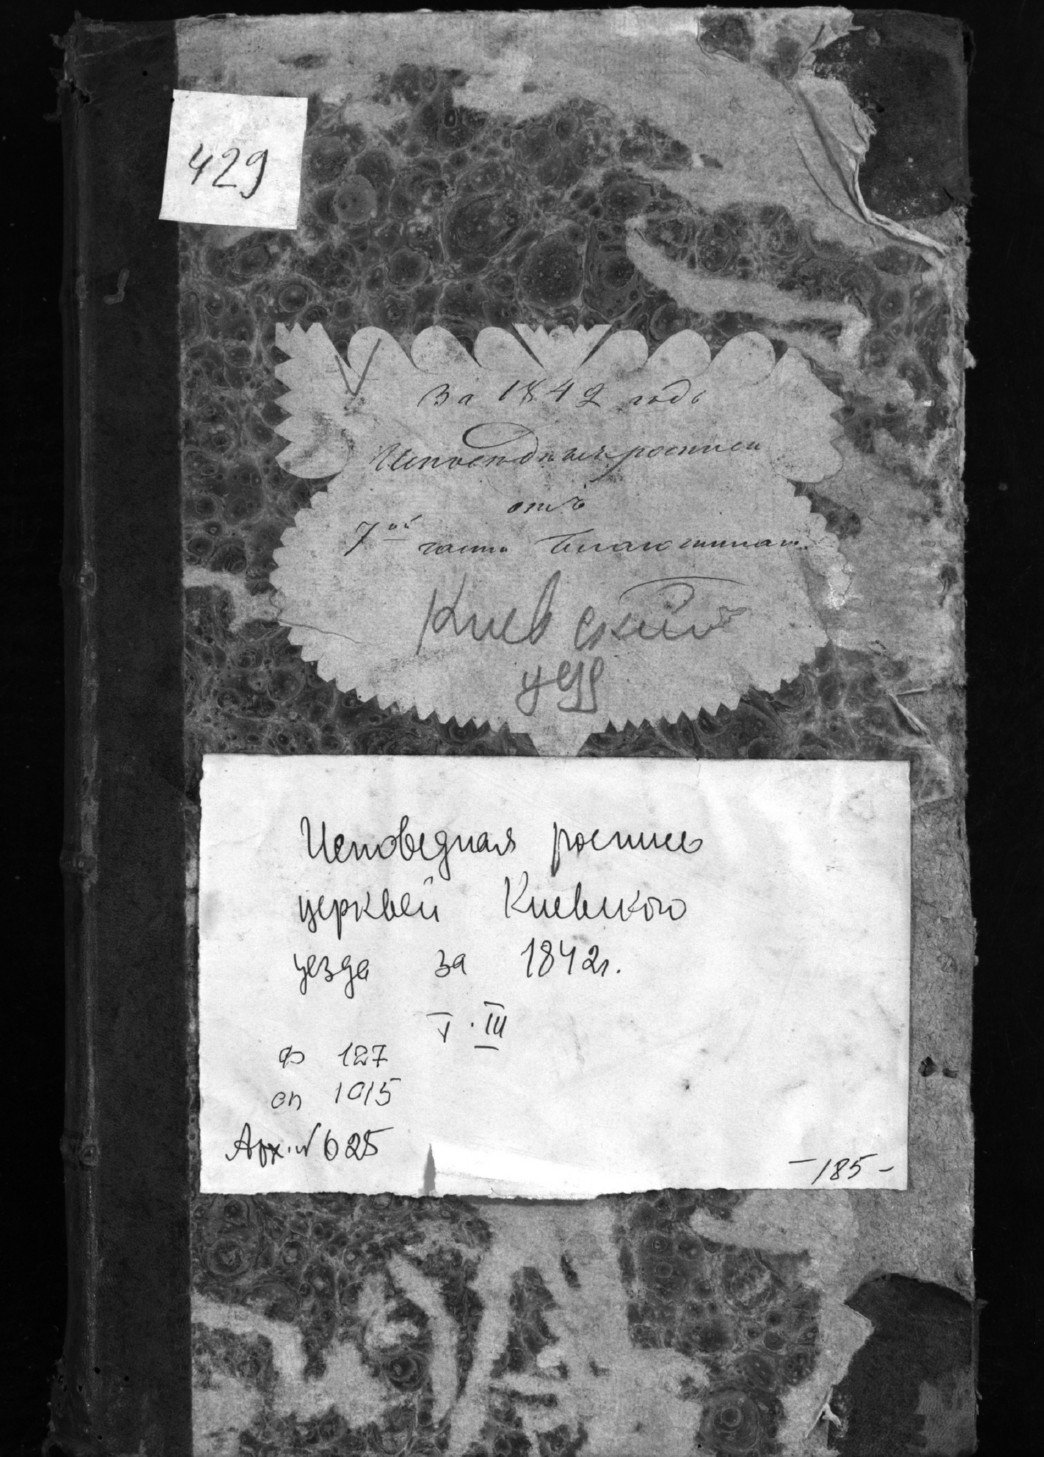 429
За 1842 годъ
Исповедныя росписи
отъ
7ой части Благочиния
Киевский
уезд
Исповедная роспись
церквей Киевского
уезда за 1842г.
V · III
Ф 127
оп 1015
Арх. № 625
-185-